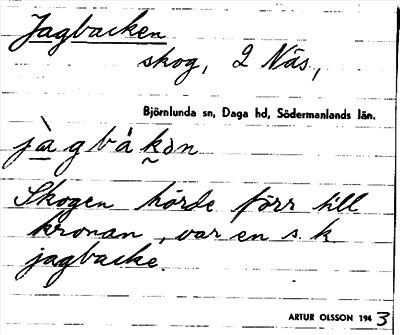 Jagbacken
skog, 2 Näs,
Björnlunda sn, Daga hd, Södermanlands län.
jàgbåkən
Skogen hörde förr till
kronan, var en s.k.
jagbacke.
ARTUR OLSSON 1943